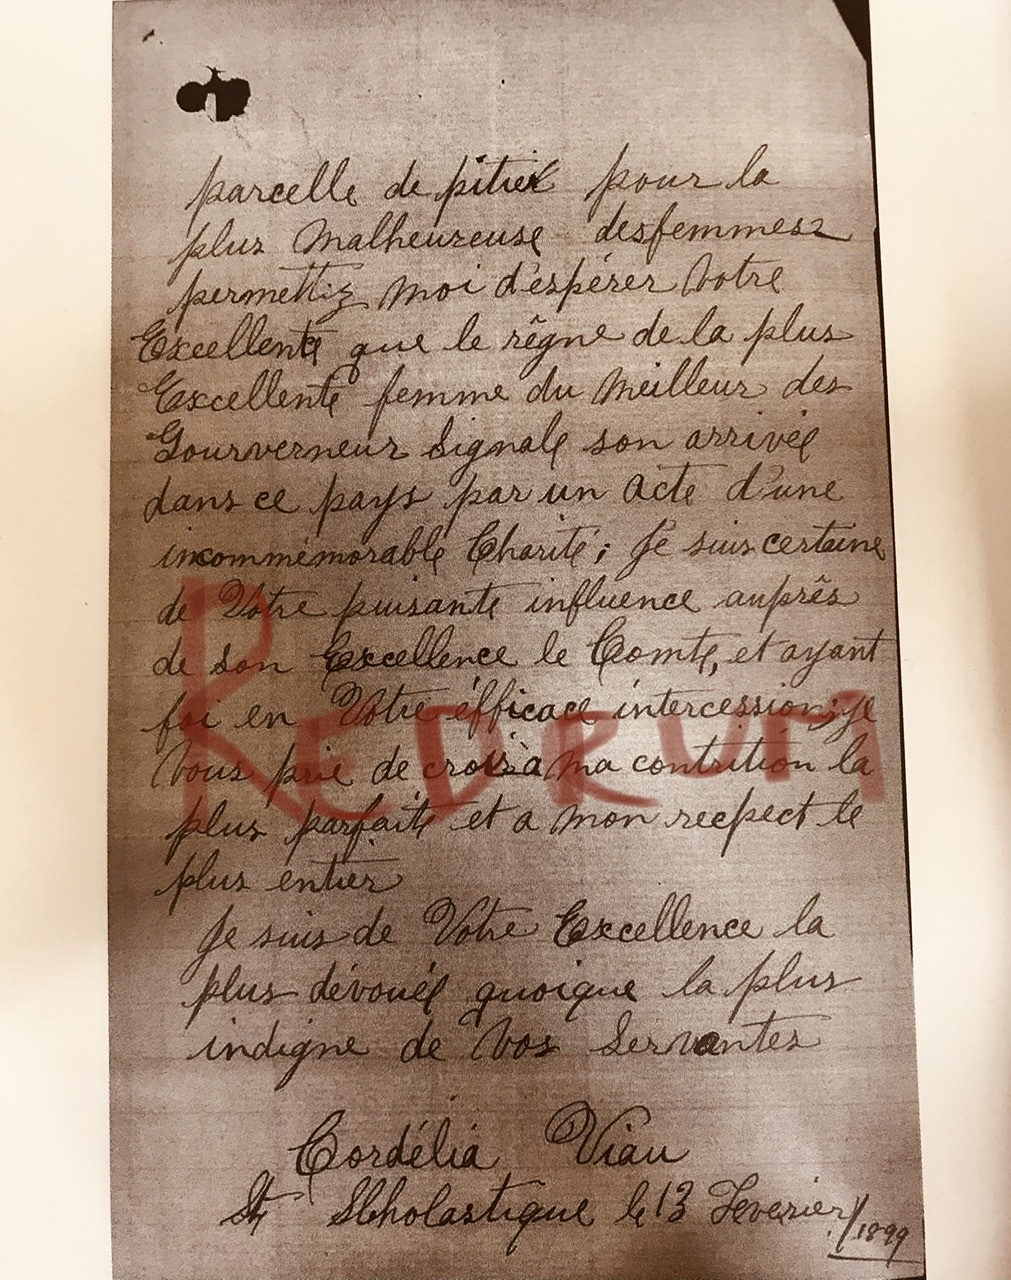 parcelle de pitiex pour la
plus Malheureuse desfemmes
permettiz moi d'éspérer Votre
Excellente que le rêgne de la plus
Excellente femme du Meilleur des
Gourverneur Signale son arrivée
dans ce pays par un acte d'une
incommémorable Charité; Je suis certaine
de Votre puisante influence auprês
de son Excellence le Comte, et ayant
foi en Votre éfficace intercession; je
Vous prie de crois à ma contrition la
plus parfaite et a mon recpect le
plus entier
Je suis de Votre Excellence la
plus dévouée quoique la plus
indigne de Vos Servantes
Cordélia Viau
St Scholastique le 13 Feverier/1899
REDRUM